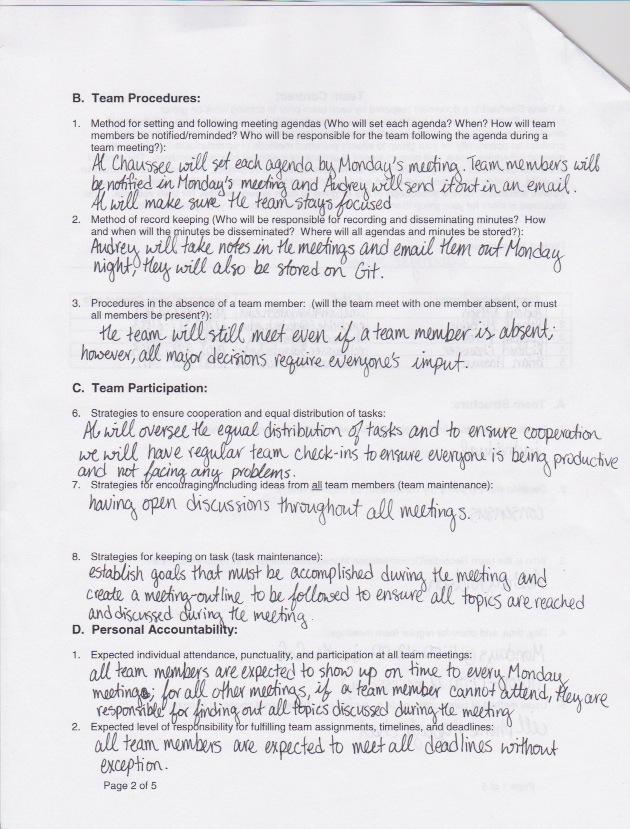 B. Team Procedures:
1. Method for setting and following meeting agendas (Who will set each agenda? When? How will team
members be notified/reminded? Who will be responsible for the team following the agenda during a
team meeting?):
Al Chaussee will set each agenda by Monday's meeting. Team members will
be notified in Monday's meeting and Audrey will send it out in an email.
Al will make sure the team stays focused
2. Method of record keeping (Who will be responsible for recording and disseminating minutes? How
and when will the minutes be disseminated? Where will all agendas and minutes be stored?):
Audrey will take notes in the meetings and email them out Monday
night, they will also be stored on Git.
3. Procedures in the absence of a team member: (will the team meet with one member absent, or must
all members be present?):
the team will still meet even if a team member is absent;
however, all major decisions require everyone's imput.
C. Team Participation:
6. Strategies to ensure cooperation and equal distribution of tasks:
Al will oversee the equal distribution of tasks and to ensure cooperation
we will have regular team check-ins to ensure everyone is being productive
and not facing any problems.
7. Strategies for encouraging/including ideas from all team members (team maintenance):
having open discussions throughout all meetings.
8. Strategies for keeping on task (task maintenance):
establish goals that must be accomplished during the meeting and
create a meeting-outline to be followed to ensure all topics are reached
and discussed during the meeting.
D. Personal Accountability:
1. Expected individual attendance, punctuality, and participation at all team meetings:
all team members are expected to show up on time to every Monday
meeting; for all other meetings, if a team member cannot attend, they are
responsible for finding out all topics discussed during the meeting
2. Expected level of responsibility for fulfilling team assignments, timelines, and deadlines:
all team members are expected to meet all deadlines without
exception.
Page 2 of 5